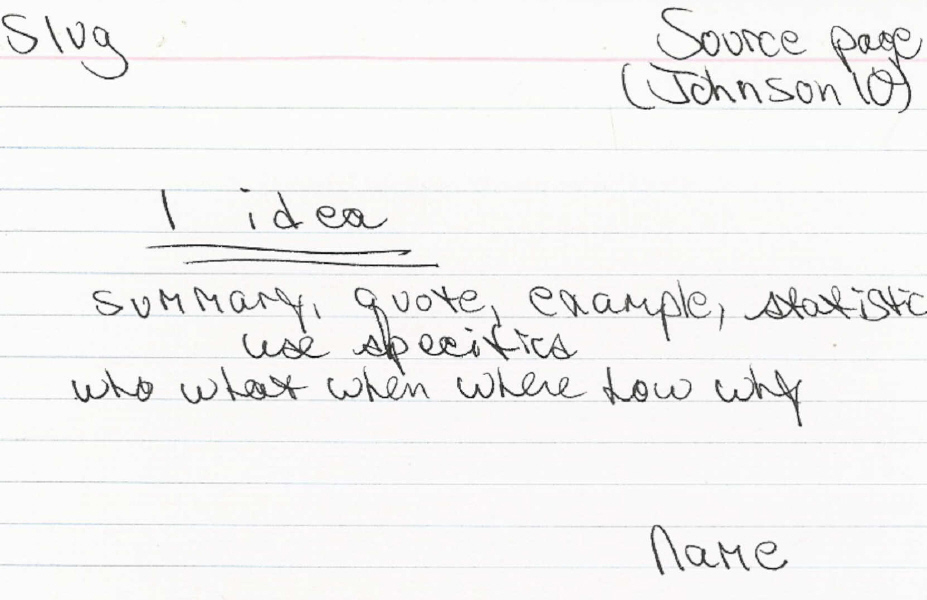 Slug
Source page
(Johnson 10)
1 idea
summary, quote, example, statistic
use specifics
who what when where how why
Name